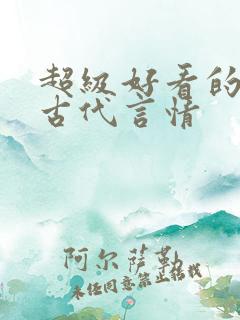 超级好看的
古代言情
阿尔萨勒
未经同意禁止转载